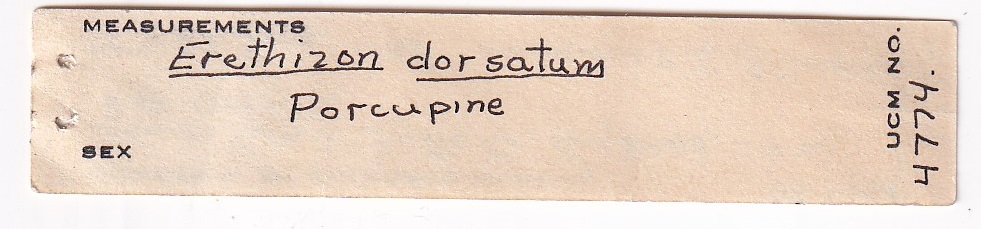 MEASUREMENTS
Erethizon dorsatum
Porcupine
SEX
UCM NO.
4774.